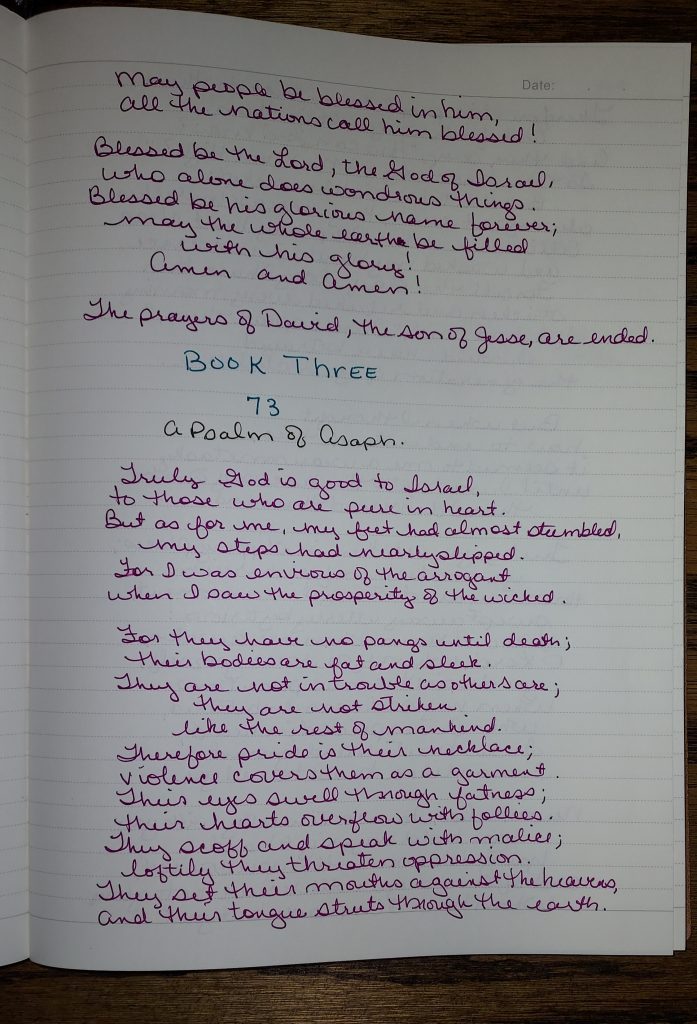 Date:
may people be blessed in him,
all the nations call him blessed!
Blessed be the Lord, the God of Israel,
who alone does wondrous things.
Blessed be his glorious name forever;
may the whole earth be filled
with his glory!
Amen and Amen!
The prayers of David, the son of Jesse, are ended.
Book Three
73
A Psalm of Asaph.
Truly God is good to Israel,
to those who are pure in heart.
But as for me, my feet had almost stumbled,
my steps had nearly slipped.
For I was envious of the arrogant
when I saw the prosperity of the wicked.
For they have no pangs until death;
their bodies are fat and sleek.
They are not in trouble as others are;
they are not striken
like the rest of mankind.
Therefore pride is their necklace;
violence covers them as a garment.
Their eyes swell through fatness;
their hearts overflow with follies.
They scoff and speak with malice;
loftily they threaten oppression.
They set their mouths against the heavens,
and their tongue struts through the earth.